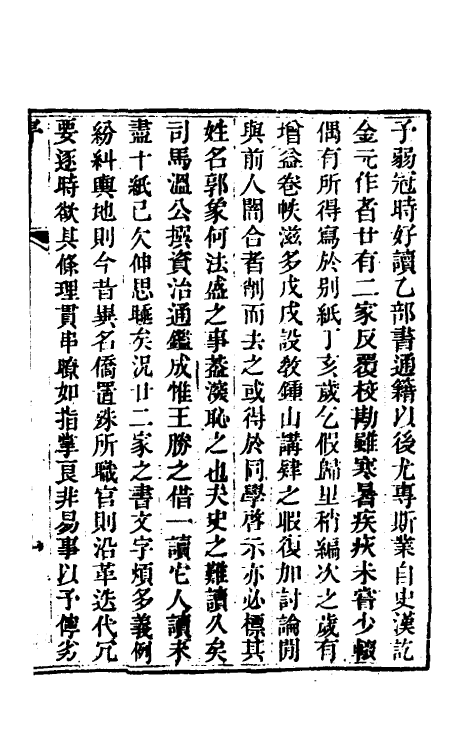 予弱冠時好讀乙部書通籍以後尤專斯業自史漢訖
金元作者廿有二家反覆校勘雖寒暑疾疢未嘗少輟
偶有所得寫於別紙丁亥歲乞假歸里稍編次之歲有
增益卷帙滋多戊戌設教鍾山講肄之暇復加討論間
與前人闇合者削而去之或得於同學啓示亦必標其
姓名郭象何法盛之事葢深恥之也夫史之難讀久矣
司馬溫公撰資治通鑑成惟王勝之借一讀它人讀未
盡十紙已欠伸思睡矣況廿二家之書文字煩多義例
紛糾輿地則今昔異名僑置殊所職官則沿革迭代冗
要逐時欲其條理貫串瞭如指掌良非易事以予儜劣
序
一